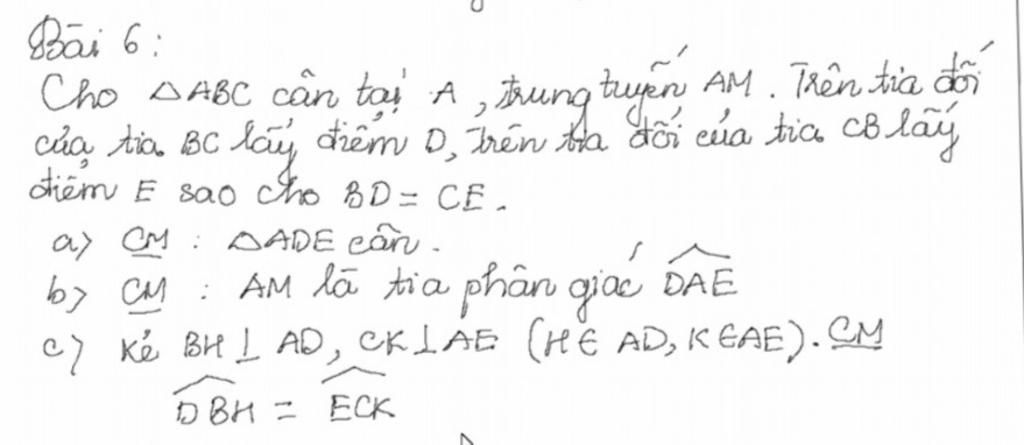 Bài 6:
Cho △ABC cân tại A, trung tuyến AM. Trên tia đối
của tia BC lấy điểm D, trên tia đối của tia CB lấy
điểm E sao cho BD = CE.
a) CM : △ADE cân.
b) CM : AM là tia phân giác \widehat{DAE}
c) Kẻ BH ⊥ AD, CK ⊥ AE (H ∈ AD, K ∈ AE). CM
\widehat{DBH} = \widehat{ECK}